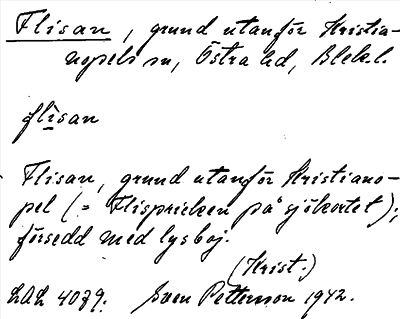 Flisan, grund utanför Kristia-
nopels sn, Östra hd, Blek.l.
flisan
Flisan, grund utanför Kristiano-
pel (= Flispricken på sjökortet);
försedd med lysboj.
(Krist.)
LAL 4079. Sven Petterson 1942.